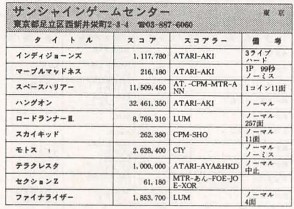 サンシャインゲームセンター 東京
東京都足立区西新井栄町2-3-4 ☎03-887-6060
タイトル スコア スコアラー 備考
インディジョーンズ 1,117,780 ATARI-AKI 3ライフ ハード
マーブルマッドネス 216,180 ATARI-AKI 1P 99秒 ノーミス
スペースハリアー 11,509,450 AT.-CPM-MTR-ANN 1コイン11面
ハングオン 32,461,350 ATARI-AKI ノーマル
ロードランナーⅢ 8,769,310 LUM ノーマル 257面
スカイキッド 262,380 CPM-SHO ノーマル 11面
モトス 2,628,400 CIY ノーマル ノーミス
テラクレスタ 1,000,000 ATARI-AYA&HKD ノーマル 中止
セクションZ 61,180 MTR-あん-FOE-JOE-XOR
ファイナライザー 1,853,700 LUM ノーマル 4面